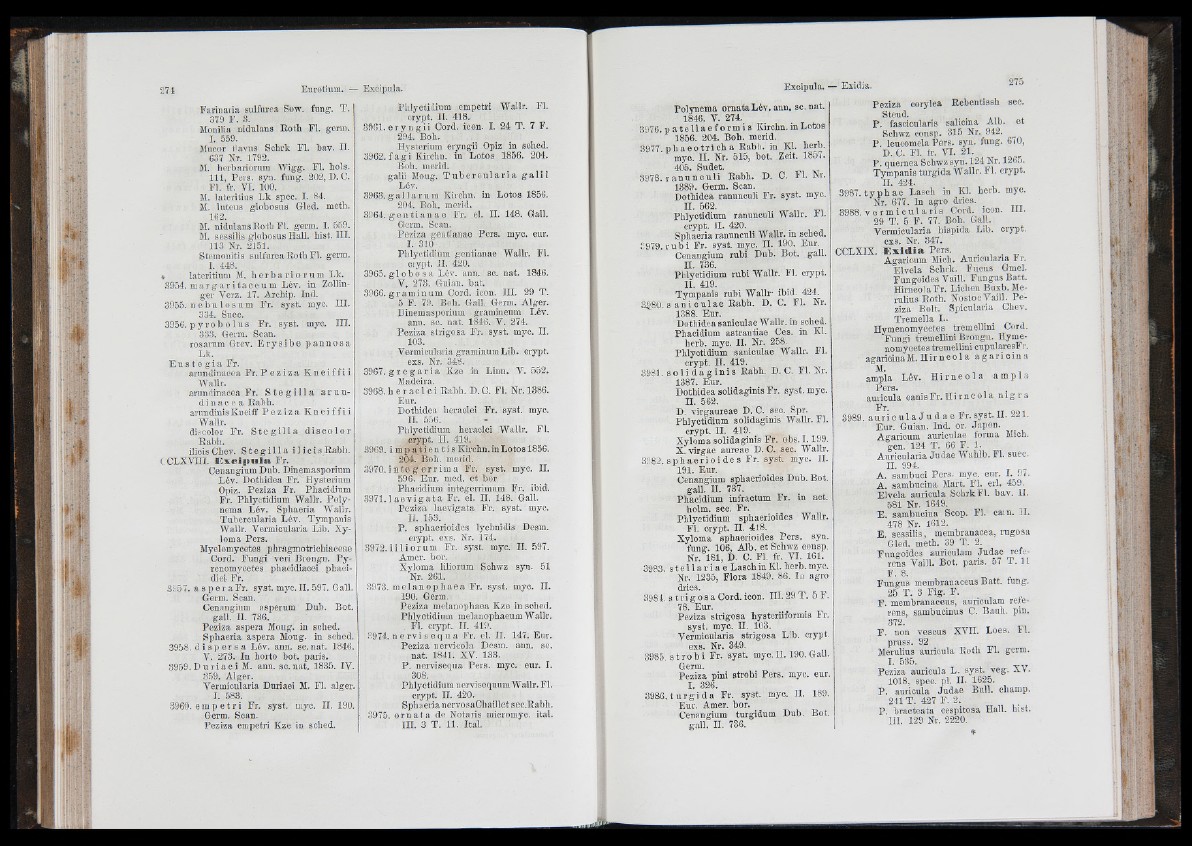 274 Eurotium. — Excipula.
Farinaria sulfurea Sow. fung. T.
379 F. 3.
Monilia nidulans Roth Fl. germ.
I. 559.
Mucor flavus Schrk Fl. bav. II.
637 Nr. 1792.
M. herbariorum Wigg. Fl. hols.
111, Pers. syn. fung. 202, D. C.
Fl. fr. VI. 100.
M. lateritius Lk spec. I. 84.
M. luteus globosus Gled. meth.
162.
M. nidulans Roth Fl. germ. I. 559.
M. sessilis globosus Hall. hist. III.
113 Nr. 2151.
Stemonitis sulfurea Roth Fl. germ.
I. 448.
lateritium M. herbariorum Lk.
3954. margaritaceum Lév. in Zollin-
ger Verz. 17. Archip. Ind.
3955. nebulosum Fr. syst. myc. III.
334. Suec.
3956. pyrobolus Fr. syst. myc. III.
333. Germ. Scan.
rosarum Grev. Erysibe pannosa
Lk.
Eustegia Fr.
arundinacea Fr. Peziza Kneiffii
Wallr.
arundinacea Fr. Stegilla arun-
dinacea Rabh.
arundinis Kneiff Peziza Kneiffii
Wallr.
discolor Fr. Stegilla discolor
Rabh.
ilicis Chev. Stegilla ilicis Rabh.
CCLXVIII. Excipula Fr.
Cenangium Dub. Dinemasporium
Lév. Dothidea Fr. Hysterium
Opiz. Peziza Fr. Phacidium
Fr. Phlyctidium Wallr. Poly-
nema Lév. Sphaeria Wallr.
Tubercularia Lév. Tympanis
Wallr. Vermicularia Lib. Xy-
loma Pers.
Myelomycetes phragmotrichiaceae
Cord. Fungi veri Brongn. Py-
renomycetes phacidiacei phaci-
diei Fr.
3957. aspera Fr. syst. myc. II. 597. Gall.
Germ. Scan.
Cenangium asperum Dub. Bot.
gall. II. 736.
Peziza aspera Moug. in sched.
Sphaeria aspera Moug. in sched.
3958. dispersa Lév. ann. sc. nat. 1846.
V. 273. In horto bot. paris.
3959. Duriaei M. ann. sc. nat. 1835. IV.
359. Alger.
Vermicularia Duriaei M. Fl. alger.
I. 583.
3960. empetri Fr. syst. myc. II. 190.
Germ. Scan.
Peziza empetri Kze in sched.
Phlyctidium empetri Wallr. Fl.
crypt. II. 418.
3961. eryngii Cord. icon. I. 24 T. 7 F.
294. Boh.
Hysterium eryngii Opiz in sched.
3962. fagi Kirchn. in Lotos 1856. 204.
Boh. merid.
galii Moug. Tubercularia galii
Lév.
3963. gallarum Kirchn. in Lotos 1856.
204. Boh. merid.
3964. gentianae Fr. el. II. 148. Gall.
Germ. Scan.
Peziza gentianae Pers. myc. eur.
I. 310.
Phlyctidium gentianae Wallr. Fl.
crypt. II. 420.
3965. globosa Lév. ann. sc. nat. 1846.
V. 273. Guian. bat.
3966. graminum Cord. icon. III. 29 T.
5 F. 79. Boh. Gall. Germ. Alger.
Dinemasporium gramineum Lév.
ann. sc. nat. 1846. V. 274.
Peziza strigosa Fr. syst. myc. II.
103.
Vermicularia graminum Lib. crypt.
exs. Nr. 348.
3967. gregaria Kze in Linn. V. 552.
Madeira.
3968. heraclei Rabh. D. C. Fl. Nr. 1386.
Eur.
Dothidea heraclei Fr. syst. myc.
II. 556.
Phlyctidium heraclei Wallr. Fl.
crypt. II. 419.
3969. impatientis Kirchn. in Lotos 1856.
204. Boh. merid.
3970. integerrima Fr. syst. myc. II.
596. Eur. med. et bor
Phacidium integerrimum Fr. ibid.
3971. laevigata Fr. el. II. 148. Gall.
Peziza laevigata Fr. syst. myc.
II. 153.
P. sphaerioides lychnidis Desm.
crypt. exs. Nr. 174.
3972. liliorum Fr. syst. myc. II. 597.
Amer. bor.
Xyloma liliorum Schwz syn. 51
Nr. 261.
3973. melanophaea Fr. syst. myc. II.
190. Germ.
Peziza melanophaea Kze in sched.
Phlyctidium melanophaeum Wallr.
Fl. crypt. II. 419.
3974. nervisequa Fr. el. II. 147. Eur.
Peziza nervicola Desm. ann. sc.
nat. 1841. XV. 133.
P. nervisequa Pers. myc. eur. I.
308.
Phlyctidium nervisequum Wallr. Fl.
crypt. II. 420.
Sphaeria nervosa Chaillet sec. Rabh.
3975. ornata de Notaris micromyc. ital.
III. 3 T. 11. Ital.
Excipula. — Exidia. 275
Polynema ornata Lév. ann. sc. nat.
1846. V. 274.
3976. patellaeformis Kirchn. in Lotos
1856. 204. Boh. merid.
3977. phaeotricha Rabh. in Kl. herb.
myc. II. Nr. 515, bot. Zeit. 1857.
405. Sudet.
3978. ranunculi Rabh. D. C. Fl. Nr.
1389. Germ. Scan.
Dothidea ranunculi Fr. syst. myc.
II. 562.
Phlyctidium ranunculi Wallr. Fl.
crypt. II. 420.
Sphaeria ranunculi Wallr. in sched.
3979. rubi Fr. syst. myc. II. 190. Eur.
Cenangium rubi Dub. Bot. gall.
II. 736.
Phlyctidium rubi Wallr. Fl. crypt.
II. 419.
Tympanis rubi Wallr. ibid. 424.
3980. saniculae Rabh. D. C. Fl. Nr.
1388. Eur.
Dothidea saniculae Wallr. in sched.
Phacidium astrantiae Ces. in Kl.
herb. myc. II. Nr. 258.
Phlyctidium saniculae Wallr. Fl.
crypt. II. 419.
3981. solidaginis Rabh. D. C. Fl. Nr.
1387. Eur.
Dothidea solidaginis Fr. syst. myc.
II. 562.
D virgaureae D. C. sec. Spr.
Phlyctidium solidaginis Wallr. Fl.
crypt. II. 419.
Xyloma solidaginis Fr. obs. I. 199.
X. virgae aureae D. C. sec. Wallr.
3982. sphaerioides Fr. syst. myc. II.
191. Eur.
Cenangium sphaerioides Dub. Bot.
gall. II. 737.
Phacidium infractum Fr. in act.
holm. sec. Fr.
Phlyctidium sphaerioides Wallr.
Fl. crypt. II. 418.
Xyloma sphaerioides Pers. syn.
fung. 106, Alb. et Schwz consp.
Nr. 181, D. C. Fl. fr. VI. 161.
3983. stellariae Lasch in Kl. herb. myc.
Nr. 1235, Flora 1849. 86. In agro
dries.
3984. strigosa Cord. icon. III. 29 T. 5 F.
78. Eur.
Peziza strigosa hysteriiformis Fr.
syst. myc. II. 103.
Vermicularia strigosa Lib. crypt.
exs. Nr. 349.
3985. strobi Fr. syst. myc. II. 190. Gall.
Germ.
Peziza pini strobi Pers. myc. eur.
I. 326.
3986. turgida Fr. syst. myc. II. 189.
Eur. Amer. bor.
Cenangium turgidum Dub. Bot.
gall. II. 736.
Peziza corylea Rebentisch sec.
Steud.
P. fascicularis salicina Alb. et
Schwz consp. 315 Nr. 942.
P. leucomela Pers. syn. fung. 670,
D. C. Fl. fr. VI. 21.
P. quernea Schwz syn. 124 Nr. 1265.
Tympanis turgida Wallr. Fl. crypt.
II. 424.
3987. typhae Lasch in Kl. herb. myc.
Nr. 677. In agro dries.
3988. vermicularis Cord. icon. III.
29 T. 5 F. 77. Boh. Gall.
Vermicularia hispida Lib. crypt.
exs. Nr. 347.
CCLXIX. Exidia Pers.
Agaricum Mich. Auricularia Fr.
Elvela Schrk. Fucus Gmel.
Fungoides Vaill. Fungus Batt.
Hirneola Fr. Lichen Buxb. Me-
rulius Roth. Nostoc Vaill. Pe-
ziza Bolt. Spicularia Chev.
Tremella L.
Hymenomycetes tremellini Cord.
Fungi tremellini Brongn. Hyme-
nomycetes tremellini cupulares Fr.
agaricina M. Hirneola agaricina
M.
ampla Lév. Hirneola ampla
Pers.
auricula canis Fr. Hirneola nigra
Fr.
3989. auricula Judae Fr. syst. II. 221.
Eur. Guian. Ind. or. Japon.
Agaricum auriculae forma Mich.
gen. 124 T. 66 F. 1.
Auricularia Judae Wahlb. Fl. suec.
II. 994.
A. sambuci Pers. myc. eur. I. 97.
A. sambucina Mart. Fl. erl. 459.
Elvela auricula Schrk Fl. bav. II.
581 Nr. 1649.
E. sambucina Scop. Fl. carn. II.
478 Nr. 1612.
E. sessilis, membranacea, rugosa
Gled. meth. 39 T. 2.
Fungoides auriculam Judae refe-
rens Vaill. Bot. paris. 57 T. 11
F. 8.
Fungus membranaceus Batt. fung.
25 T. 3 Fig. F.
F. membranaceus, auriculam refe-
rens, sambucinus C. Bauh. pin.
372.
F. non vescus XVII. Loes. Fl.
pruss. 92
Merulius auricula Roth Fl. germ.
I. 535.
Peziza auricula L. syst. veg. XV.
1018, spec. pl. II. 1625.
P. auricula Judae Bull. champ.
241 T. 427 F. 2.
P. bracteata cespitosa Hall. hist.
III. 129 Nr. 2220.
*